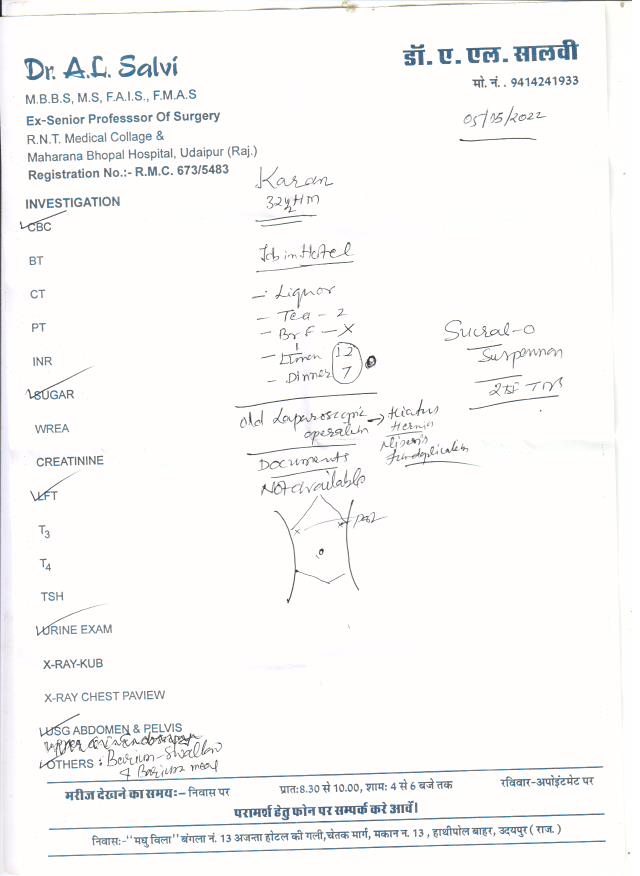 Dr. A.L. Salvi
डॉ. ए. एल. सालवी
मो. नं. . 9414241933
M.B.B.S, M.S, F.A.I.S., F.M.A.S
Ex-Senior Professsor Of Surgery
R.N.T. Medical Collage &
Maharana Bhopal Hospital, Udaipur (Raj.)
Registration No.:- R.M.C. 673/5483
05/05/2022
Karan
INVESTIGATION
CBC
BT
Job in Hotel
CT
- Liquor
- Tea - 2
PT
- BrF - X
INR
- Dinner 7
12
Sucral-O
Suspension
SUGAR
WREA
Old Laparoscopic → Hiatus
operation Hernia
CREATININE
Documents
Not available
LFT
T3
T4
TSH
URINE EXAM
X-RAY-KUB
X-RAY CHEST PAVIEW
USG ABDOMEN & PELVIS
OTHERS : Barium-Swallow
& Barium meal
मरीज देखने का समय:– निवास पर प्रात:8.30 से 10.00, शाम: 4 से 6 बजे तक रविवार-अपोइंटमेट पर
परामर्श हेतु फोन पर सम्पर्क करे आवें।
निवास:-"मधु विला" बंगला नं. 13 अजन्ता होटल की गली,चेतक मार्ग, मकान न. 13 , हाथीपोल बाहर, उदयपुर ( राज. )